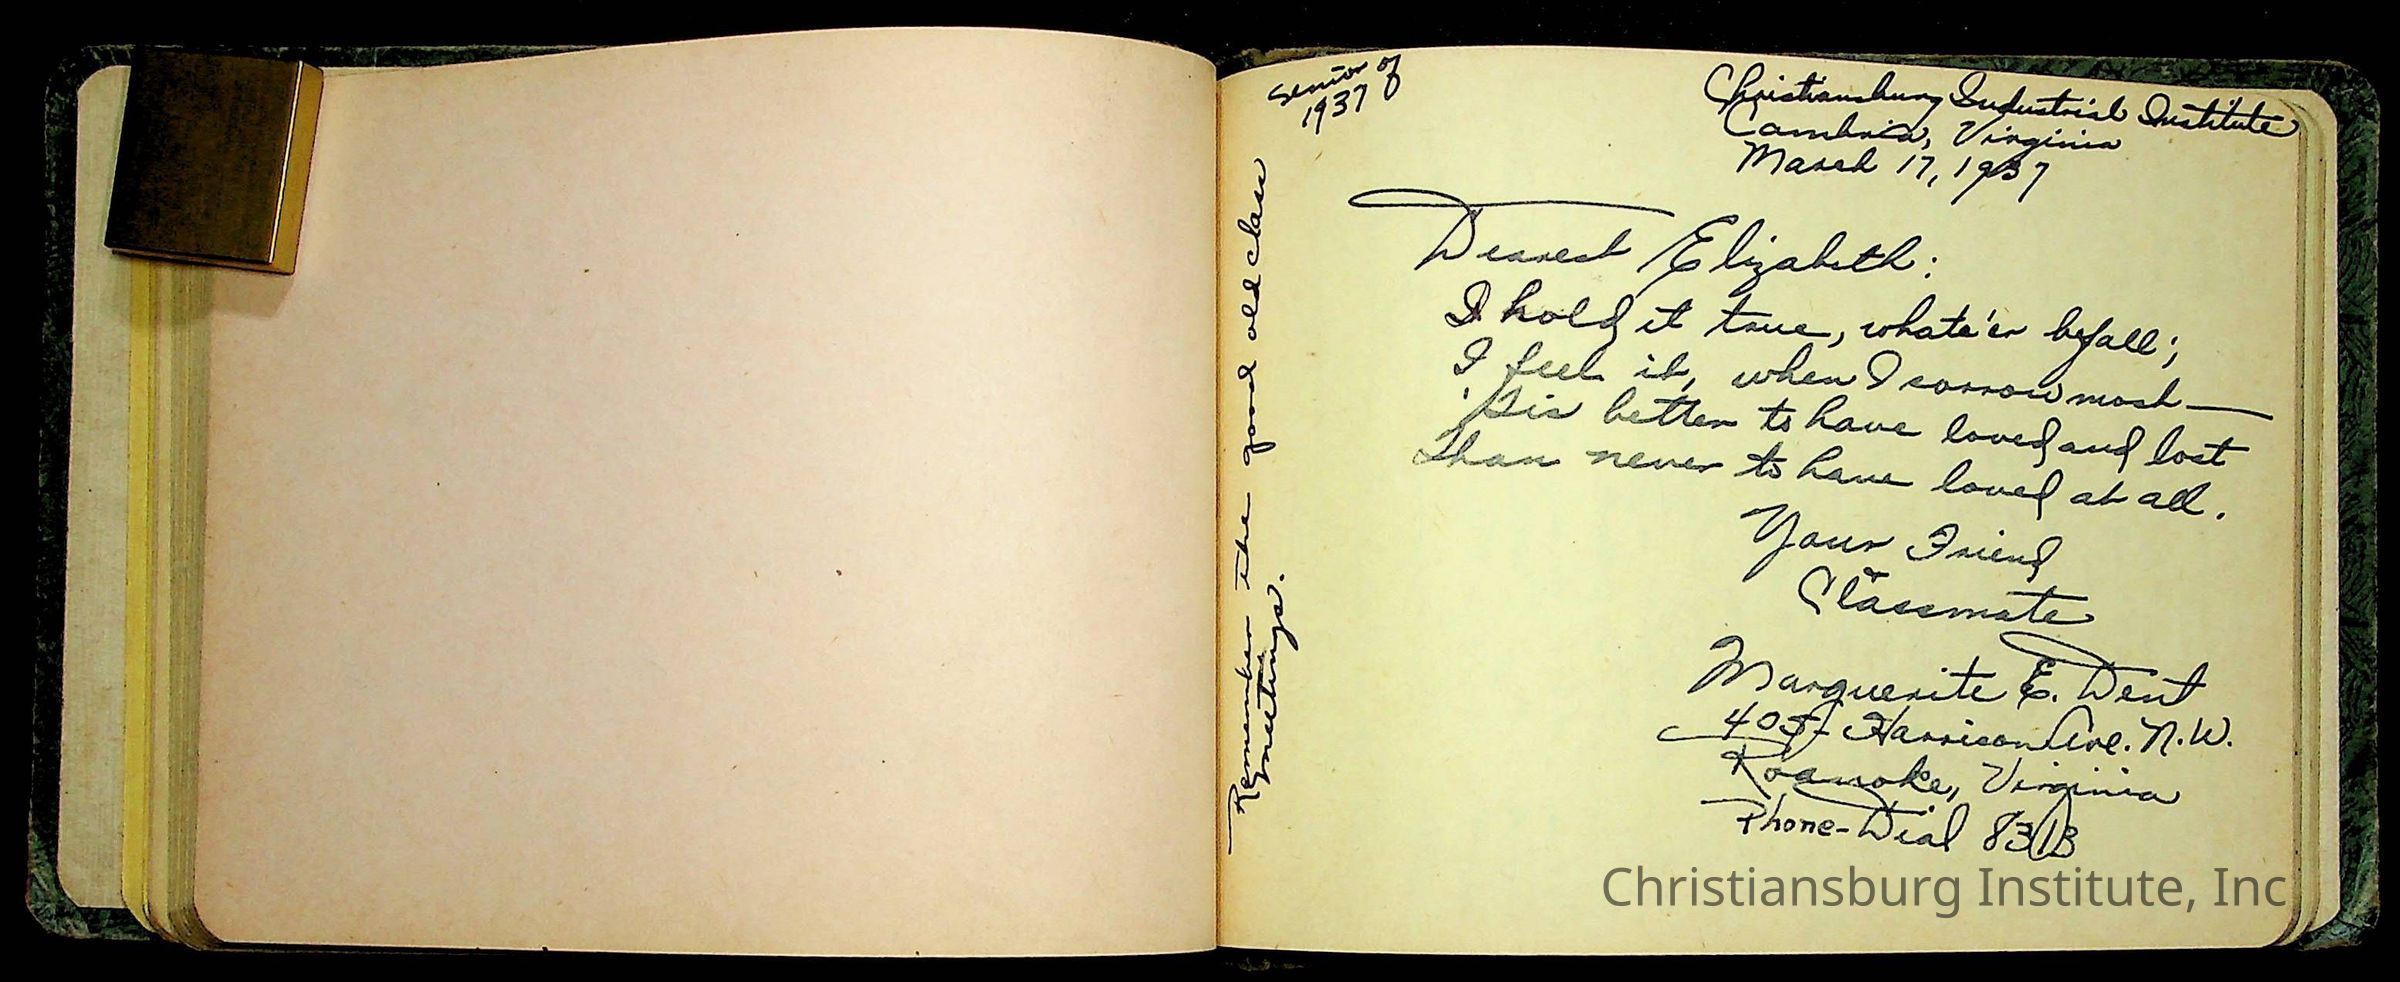 Senior of
1937
Christiansburg Industrial Institute
Cambria, Virginia
March 17, 1937
Dearest Elizabeth:
I hold it true, whate'er befall;
I feel it, when I sorrow most—
'Tis better to have loved and lost
Than never to have loved at all.
Your Friend
Classmate
Marguerite E. Dent
405- Harrison Ave. N.W.
Roanoke, Virginia
Phone-Dial 831B
Remember the good old class
meetings.
Christiansburg Institute, Inc